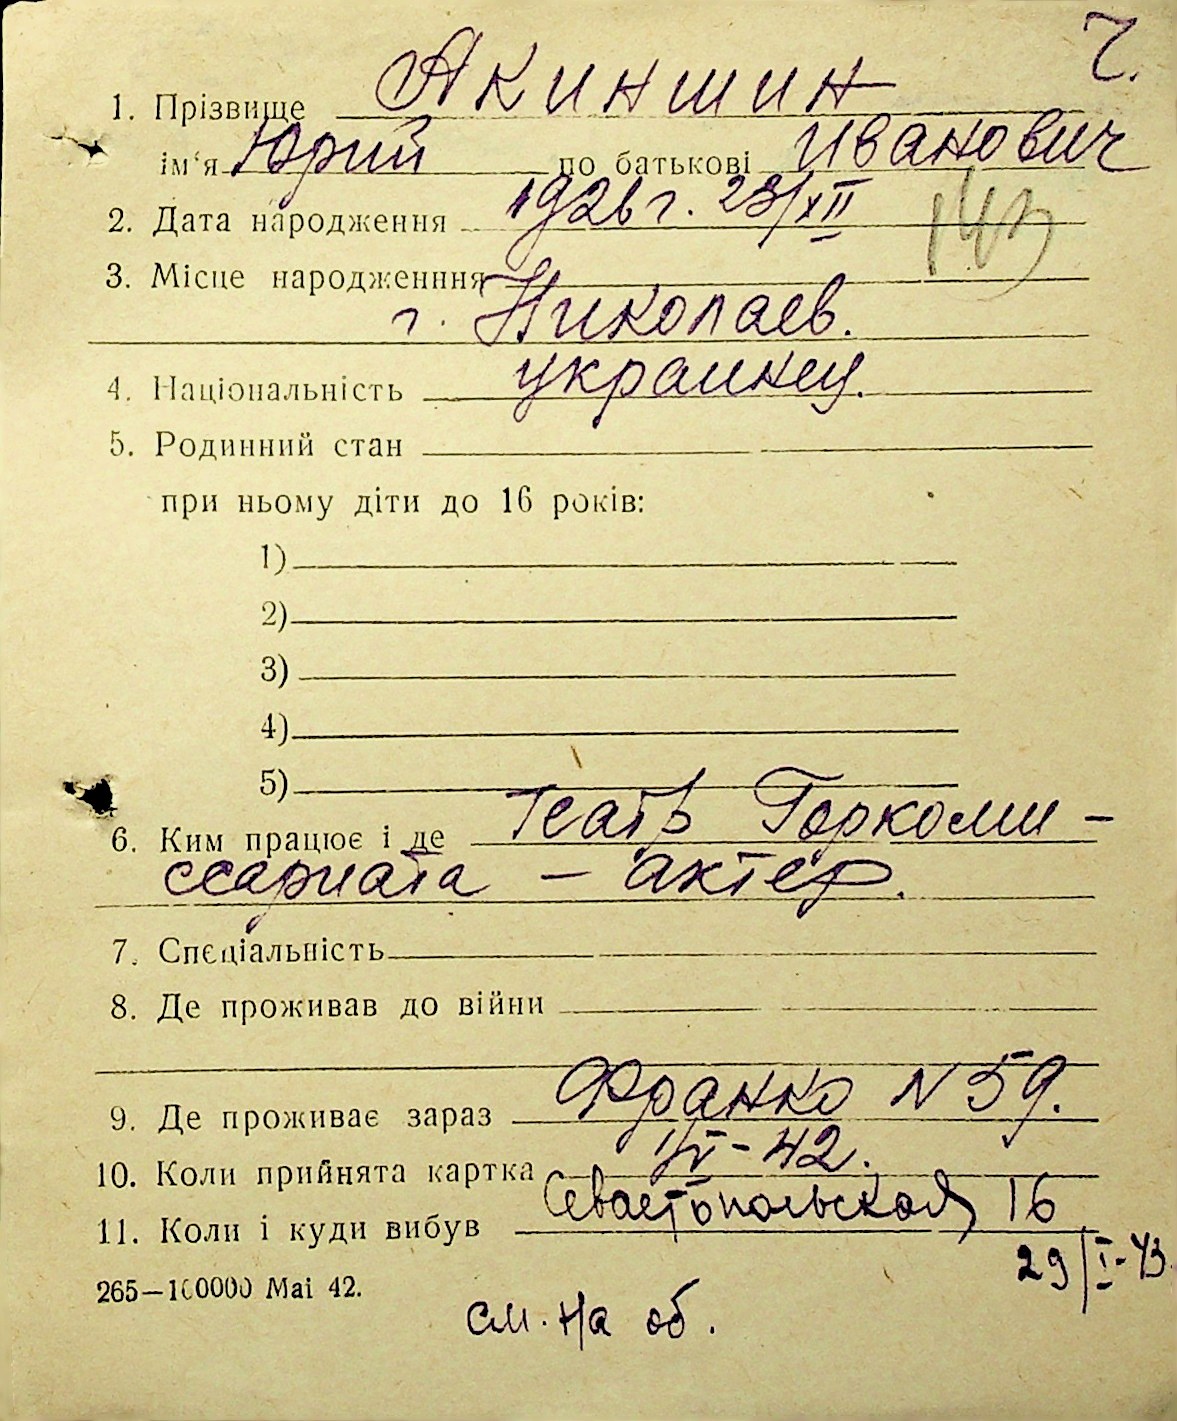 Ч.
1. Прізвище Акиншин
ім‘я Юрий по батькові Иванович
2. Дата народження 1926 г. 23/XII
143
3. Місце народженння
г. Николаев.
4. Національність украинец.
5. Родинний стан
при ньому діти до 16 років:
1)
2)
3)
4)
5)
6. Ким працює і де театр Горкоми-
ссариата – актер.
7. Спеціальність
8. Де проживав до війни
9. Де проживає зараз Франко N 59.
10. Коли прийнята картка -42.
11. Коли і куди вибув Севастопольская 16
29/I-43
265—100000 Mai 42.
см. на об.